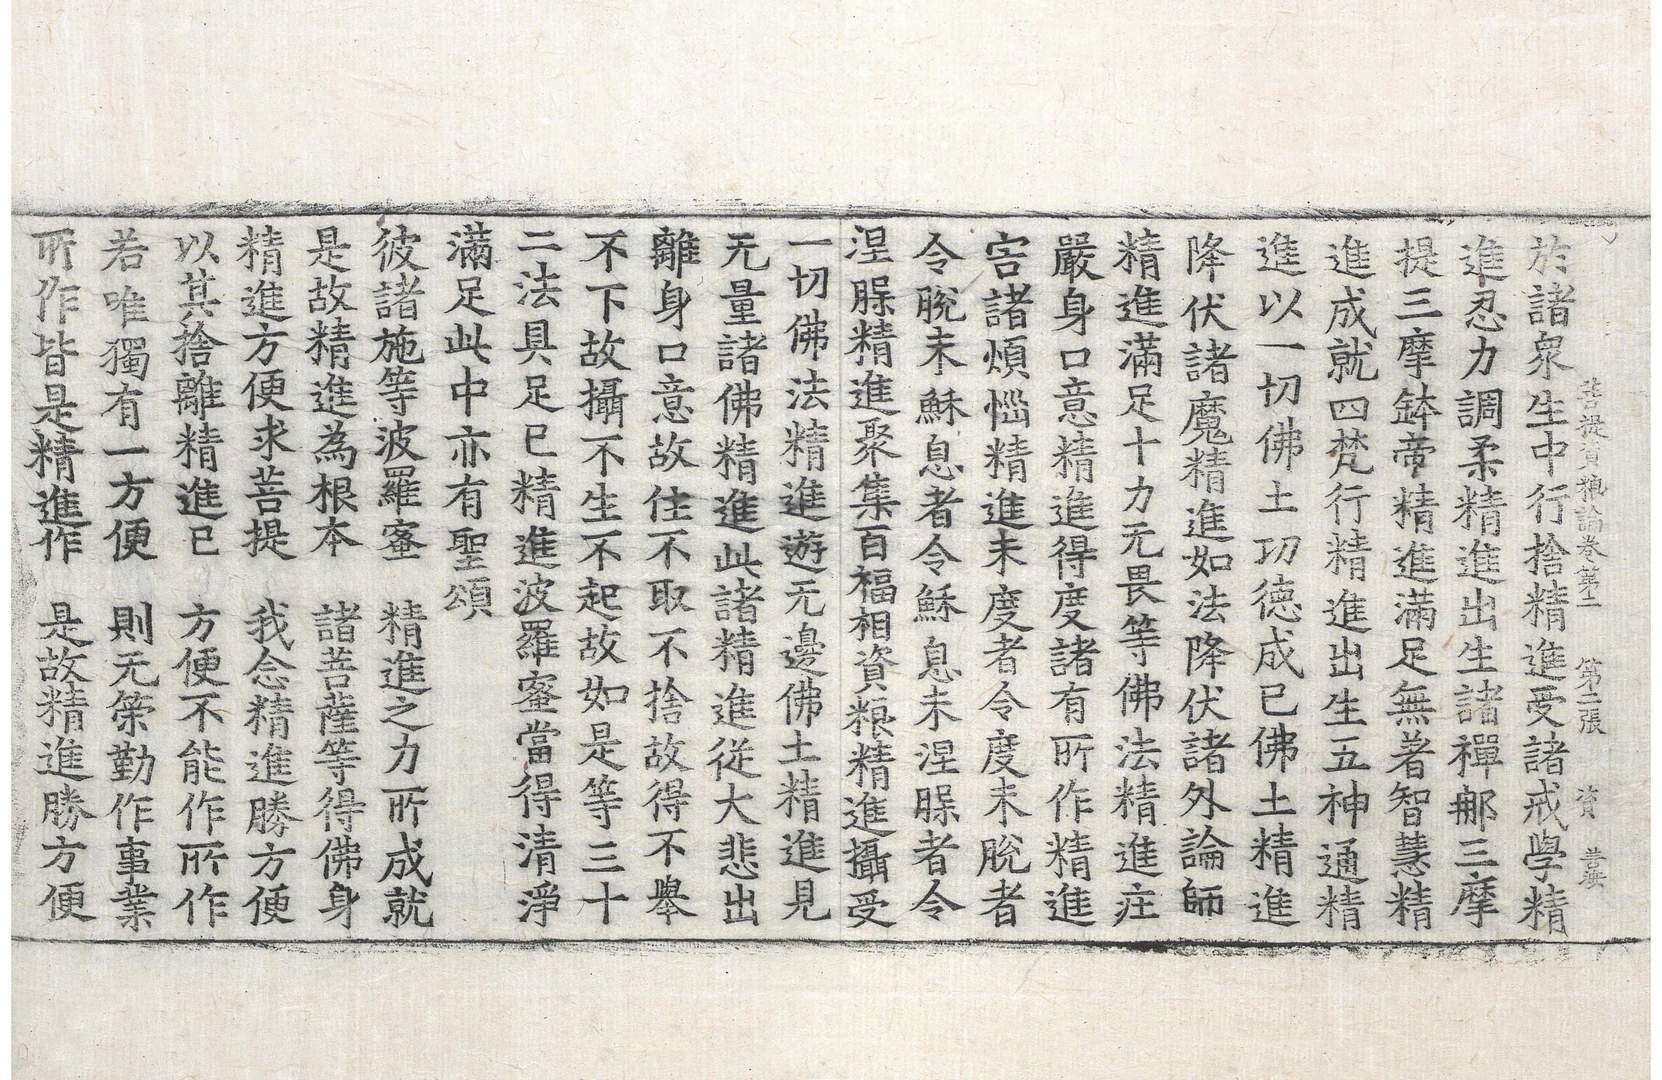 菩提資粮論卷第二 第二張 資
於諸衆生中行捨精進受諸戒學精
進忍力調柔精進出生諸禪那三摩
提三摩鉢帝精進滿足無著智慧精
進成就四梵行精進出生五神通精
進以一切佛土功德成已佛土精進
降伏諸魔精進如法降伏諸外論師
精進滿足十力无畏等佛法精進庄
嚴身口意精進得度諸有所作精進
害諸煩惱精進未度者令度未脫者
令脫未穌息者令穌息未涅槃者令
涅槃精進聚集百福相資粮精進攝受
一切佛法精進遊无邊佛土精進見
无量諸佛精進此諸精進從大悲出
離身口意故住不取不捨故得不舉
不下故攝不生不起故如是等三十
二法具足已精進波羅蜜當得清淨
滿足此中亦有聖頌
彼諸施等波羅蜜 精進之力所成就
是故精進為根本 諸菩薩等得佛身
精進方便求菩提 我念精進勝方便
以其捨離精進已 方便不能作所作
若唯獨有一方便 則无策勤作事業
所作皆是精進作 是故精進勝方便